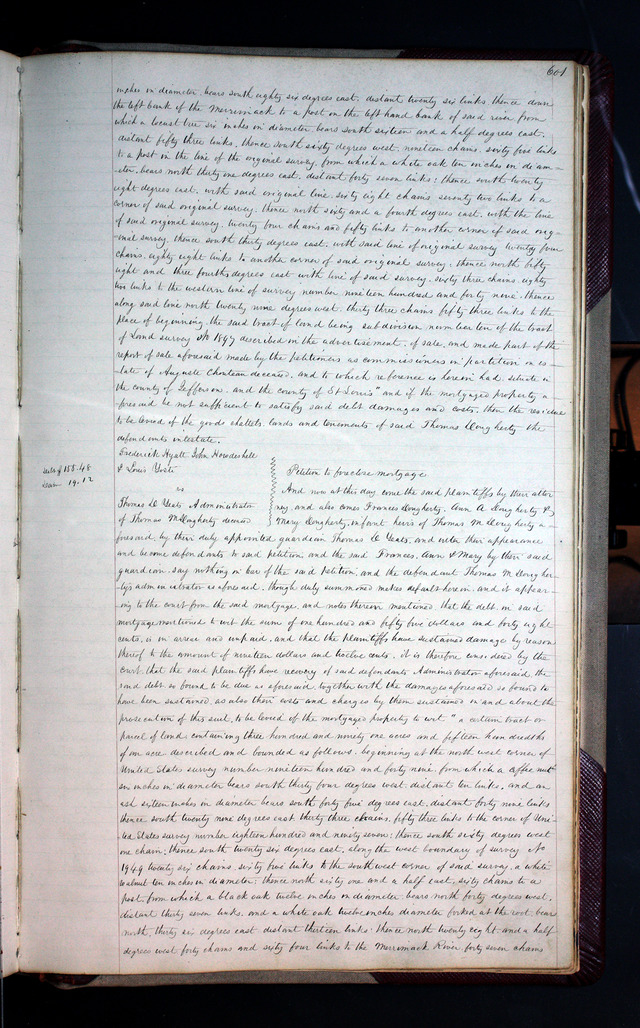 601
inches in diameter, bears south eighty six degrees east. distant twenty six links thence down
the left bank of the Merrimack to a post on the left hand bank of said river from
which a locust tree six inches in diameter bears south sixteen and a half degrees east.
distant fifty three links, thence south sixty degrees west, nineteen chains sixty five links
to a post in the line of the original survey, from which a white oak ten inches in diam-
eter, bears north thirty one degrees east. distant forty seven links: thence south twenty
eight degrees east. with said original line sixty eight chains seventy two links to a
corner of said original survey. thence north sixty and a fourth degrees east. with the line
of said original survey, twenty four chains and fifty links to another corner of said orig-
inal survey, thence south thirty degrees east. with said line of original survey twenty four
chains, eighty eight links to another corner of said original survey: thence north fifty
eight and three fourths degrees east with line of said survey, sixty three chains, eighty
two links to the western line of survey number nineteen hundred and forty nine: thence
along said line north twenty nine degrees west. thirty three chains fifty three links to the
place of beginning, the said tract of land being subdivision number ten of the tract
of Land survey No 1897 described in the advertisement of sale, and made part of the
report of sale aforesaid made by the petitioners as commissioners in partition in es-
tate of Auguste Chouteau deceased. and to which reference is herein had. situate in
the county of Jefferson. and the county of St Louis" and if the mortgaged property a-
foresaid be not sufficient to satisfy said debt damages and costs, then the residue
to be levied of the goods chattels, lands and tenements of said Thomas Dougherty the
defendants intestate.
Frederick Hyatt John Howdeshell
& Louis Yosti
vs
Thomas D Yeats Administrator
of Thomas M Dougherty deceased
debt $155.48
Dam 19.12
Petition to foreclose mortgage
And now at this day come the said plaintiffs by their attor
ney, and also comes Frances Dougherty, Ann A Dougherty &
Mary Dougherty, infant heirs of Thomas M Dougherty a-
foresaid, by their duly appointed guardian Thomas D Yeats, and enter their appearance
and become defendants to said petition and the said Frances, Ann & Mary by their said
guardian say nothing in bar of the said petition, and the defendant Thomas M Dougher
-ty's administrator as aforesaid, though duly summoned makes default herein. and it appear-
ing to the court from the said mortgage, and notes therein mentioned that the debt in said
mortgage mentioned to wit the sum of one hundred and fifty five dollars and forty eight
cents, is in arrear and unpaid, and that the plaintiffs have sustained damage by reason
thereof to the amount of nineteen dollars and twelve cents, it is therefore considered by the
court, that the said plaintiffs have recovery of said defendants Administrator aforesaid, the
said debt so found to be due as aforesaid together with the damages aforesaid so found to
have been sustained, as also their costs and charges by them sustained in and about the
prosecution of this suit, to be levied of the mortgaged property to wit " a certain tract or
parcel of land containing three hundred and ninety one acres and fifteen hundredths
of an acre described and bounded as follows. beginning at the north west corner of
United States survey number nineteen hundred and forty nine, from which a coffee nut
six inches in diameter bears south thirty four degrees west. distant ten links, and an
ash sixteen inches in diameter bears south forty five degrees east, distant forty nine links
thence south twenty nine degrees east thirty three chains, fifty three links to the corner of Uni-
ted States survey number eighteen hundred and ninety seven: thence south sixty degrees west
one chain: thence south twenty six degrees east, along the west boundary of survey No
1949 twenty six chains, sixty five links to the southwest corner of said survey, a white
walnut ten inches in diameter: thence north sixty one and a half east, sixty chains to a
post, from which a black oak twelve inches in diameter. bears north forty degrees west.
distant thirty seven links, and a white oak twelve inches diameter forked at the root bears
north, thirty six degrees east distant thirteen links: thence north twenty eight and a half
degrees west forty chains and sixty four links to the Merrimack River forty seven chains